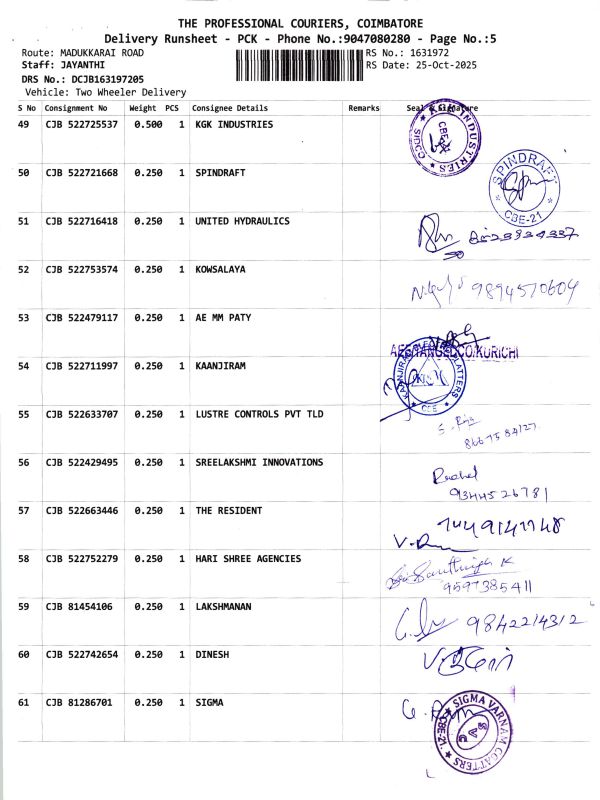 THE PROFESSIONAL COURIERS, COIMBATORE
Delivery Runsheet - PCK - Phone No.:9047080280 - Page No.:5
Route: MADUKKARAI ROAD RS No.: 1631972
Staff: JAYANTHI RS Date: 25-Oct-2025
DRS No.: DCJB163197205
Vehicle: Two Wheeler Delivery
S No Consignment No Weight PCS Consignee Details Remarks Seal & Signature
49 CJB 522725537 0.500 1 KGK INDUSTRIES INDUSTRIES SIDCO CBE
50 CJB 522721668 0.250 1 SPINDRAFT SPINDRAFT CBE-21
51 CJB 522716418 0.250 1 UNITED HYDRAULICS
52 CJB 522753574 0.250 1 KOWSALAYA 9894570604
53 CJB 522479117 0.250 1 AE MM PATY
54 CJB 522711997 0.250 1 KAANJIRAM CBE
55 CJB 522633707 0.250 1 LUSTRE CONTROLS PVT TLD
56 CJB 522429495 0.250 1 SREELAKSHMI INNOVATIONS 9344526781
57 CJB 522663446 0.250 1 THE RESIDENT
58 CJB 522752279 0.250 1 HARI SHREE AGENCIES 9597385411
59 CJB 81454106 0.250 1 LAKSHMANAN 9842214312
60 CJB 522742654 0.250 1 DINESH
61 CJB 81286701 0.250 1 SIGMA SIGMA VARNAM COATTERS CBE-21